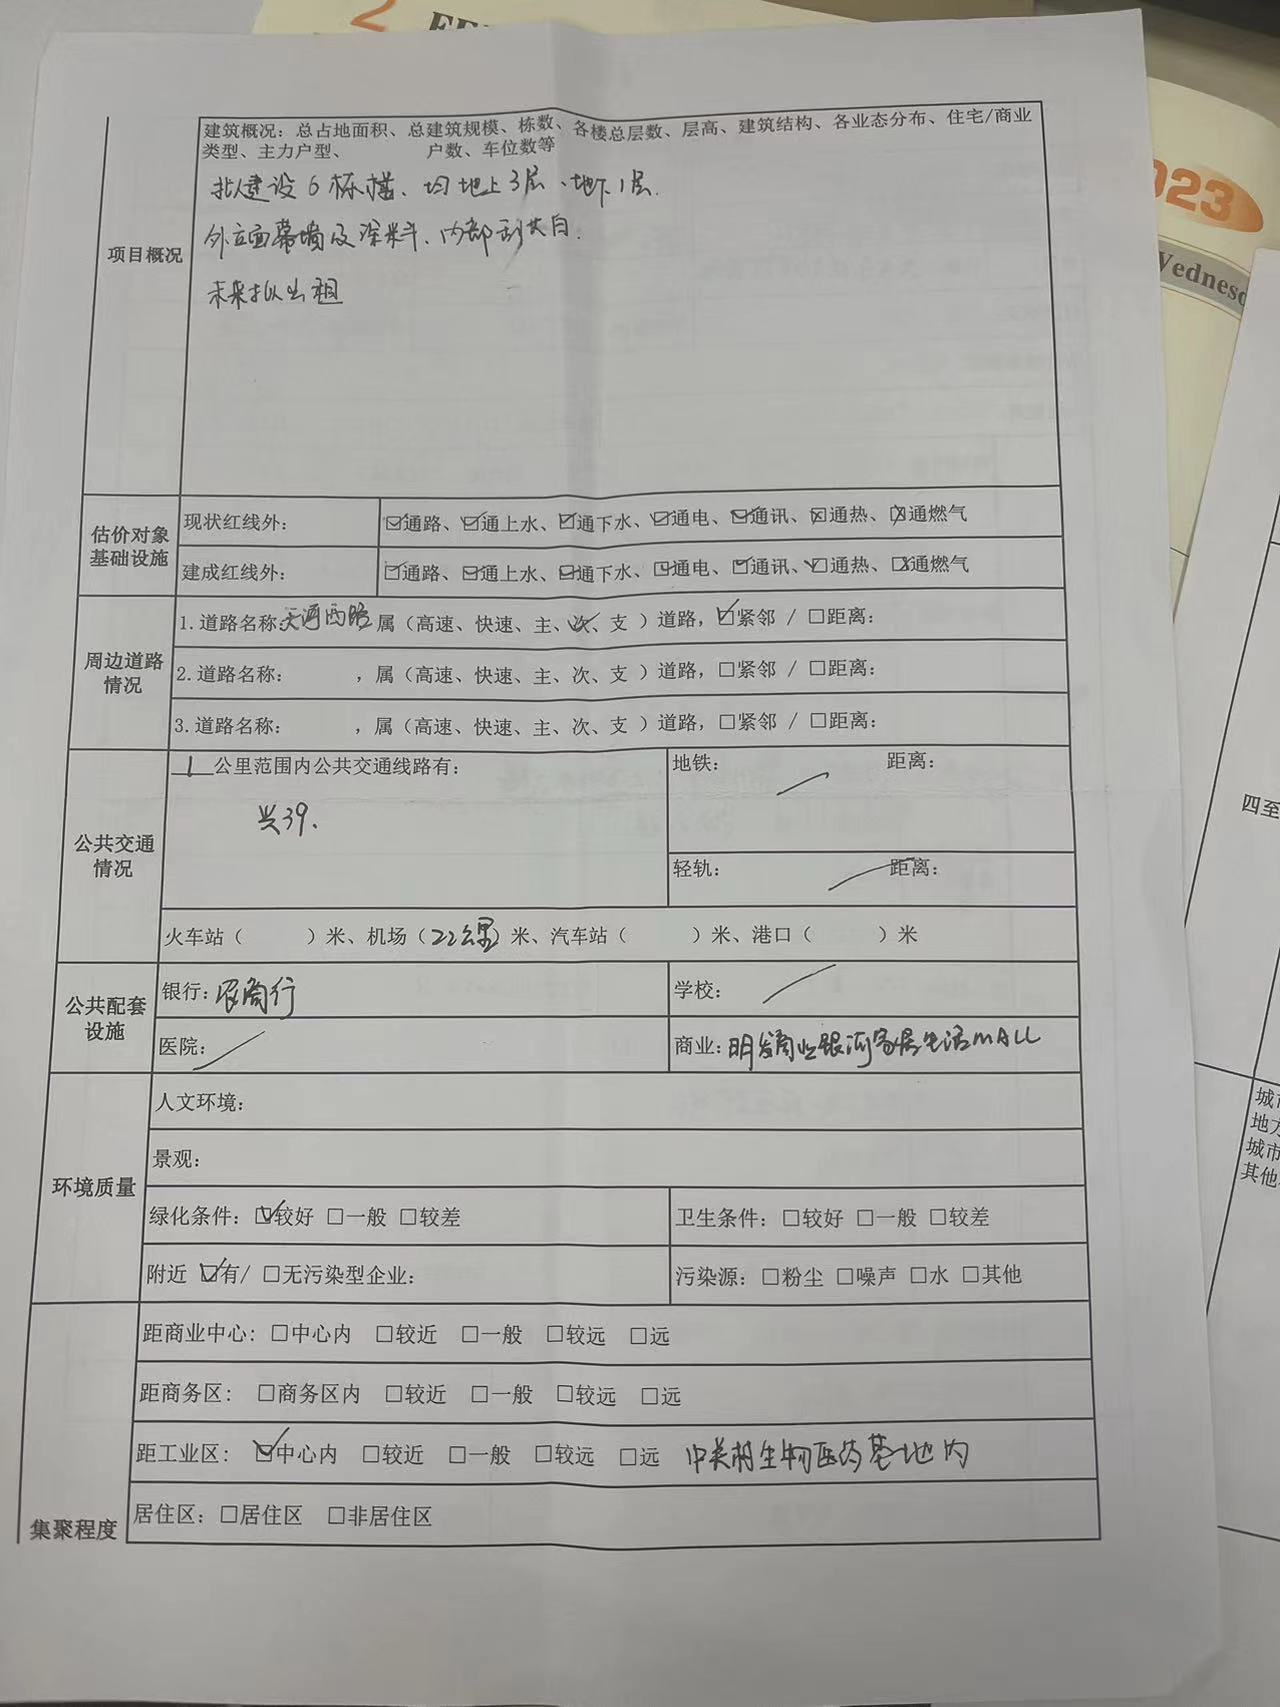 建筑概况：总占地面积、总建筑规模、栋数、各楼总层数、层高、建筑结构、各业态分布、住宅/商业
类型、主力户型、 户数、车位数等
拟建设6栋楼、均地上3层、地下1层.
项目概况
外立面幕墙及涂料、内部刮大白.
未来拟出租
估价对象
基础设施
现状红线外： ☑通路、☑通上水、☑通下水、☑通电、☑通讯、☒通热、☒通燃气
建成红线外： ☑通路、☑通上水、☑通下水、☑通电、☑通讯、☑通热、☒通燃气
周边道路
情况
1.道路名称:天河西路 属（高速、快速、主、次、支 ）道路，☑紧邻 / □距离：
2.道路名称： ，属（高速、快速、主、次、支 ）道路，□紧邻 / □距离：
3.道路名称： ，属（高速、快速、主、次、支 ）道路，□紧邻 / □距离：
公共交通
情况
1 公里范围内公共交通线路有：
兴39.
地铁： 距离：
轻轨： 距离：
火车站（ ）米、机场（22公里）米、汽车站（ ）米、港口（ ）米
公共配套
设施
银行：农商行
学校：
医院：
商业：明发商业银河客居生活MALL
环境质量
人文环境：
景观：
绿化条件：☑较好 □一般 □较差
卫生条件：□较好 □一般 □较差
附近 ☑有/ □无污染型企业：
污染源：□粉尘 □噪声 □水 □其他
集聚程度
距商业中心：□中心内 □较近 □一般 □较远 □远
距商务区： □商务区内 □较近 □一般 □较远 □远
距工业区：☑中心内 □较近 □一般 □较远 □远 中关村生物医药基地内
居住区：□居住区 □非居住区
2
023
Wednesd
四至
城市
地方
城市
其他